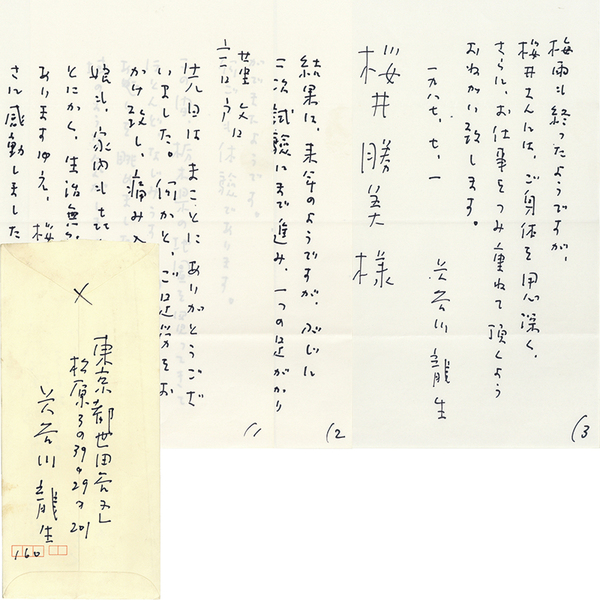 梅雨も終ったようですが、
桜井さんには、ご身体を用心深く、
さらに、お仕事をつみ重ねて頂くよう
おねがい致します。
一九八七、七、一
長谷川龍生
桜井勝美様
(3
結果は、来年のようですが、ぶじに
二次試験にまで進み、一つの足がかり
(2
先日はまことにありがとうござ
いました。何かと、ご足労をお
かけ致し、痛み入
娘も、家内も
とにかく、生活無
ありますゆえ、桜
さに感動しました
(1
×
東京都世田谷区
松原3の39の29の201
長谷川龍生
160